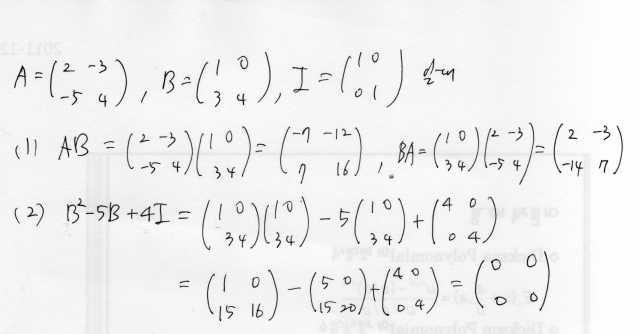 A = (2 -3 / -5 4), B = (1 0 / 3 4), I = (1 0 / 0 1)
(1) AB = (2 -3 / -5 4)(1 0 / 3 4) = (-7 -12 / 7 16), BA = (1 0 / 3 4)(2 -3 / -5 4) = (2 -3 / -14 7)
(2) B²-5B+4I = (1 0 / 3 4)(1 0 / 3 4) - 5(1 0 / 3 4) + (4 0 / 0 4)
= (1 0 / 15 16) - (5 0 / 15 20) + (4 0 / 0 4) = (0 0 / 0 0)